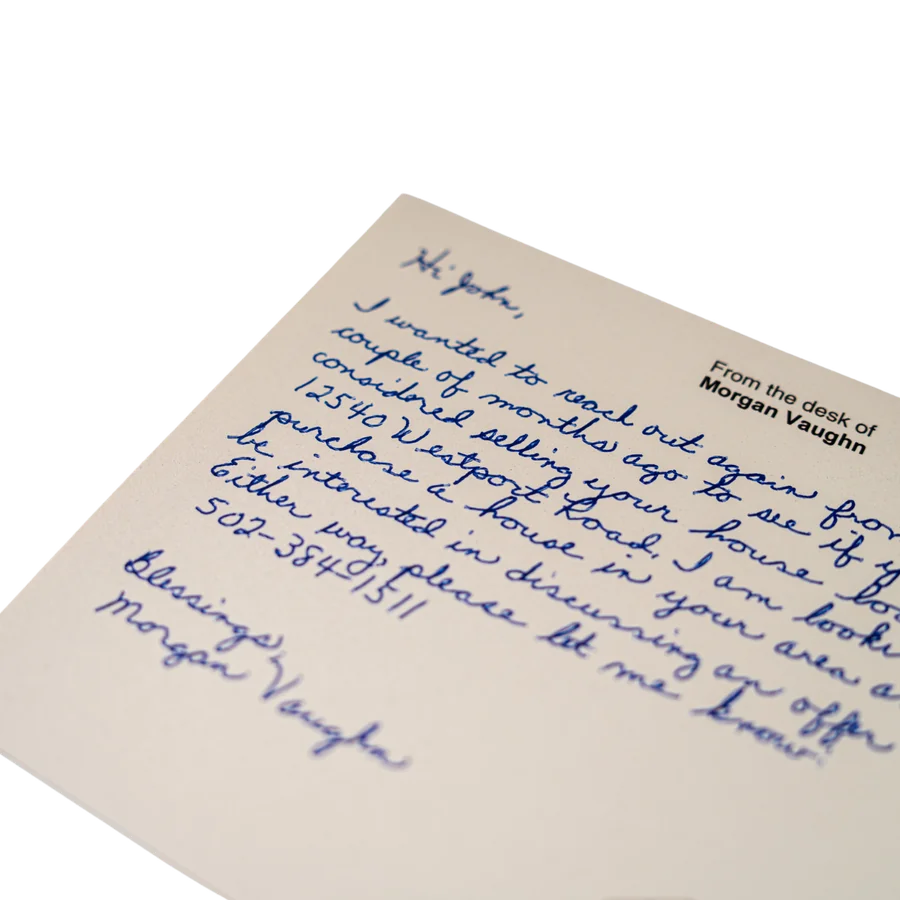 From the desk of
Morgan Vaughn
Hi John,
I wanted to reach out again from
couple of months ago to see if
considered selling your house
12540 Westport Road. I am looki
purchase a house in your area
be interested in discussing an offer
Either way, please let me know.
502-384-1511
Blessings,
Morgan Vaughn